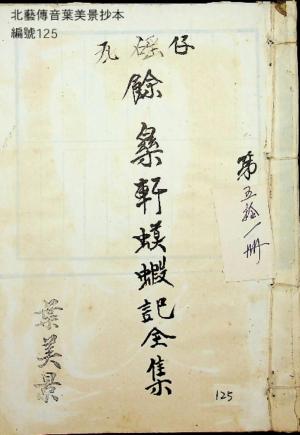 北藝傳音葉美景抄本
編號125
瓦磘仔
餘桑軒蟆蝦記全集
第五拾一冊
葉美景
125